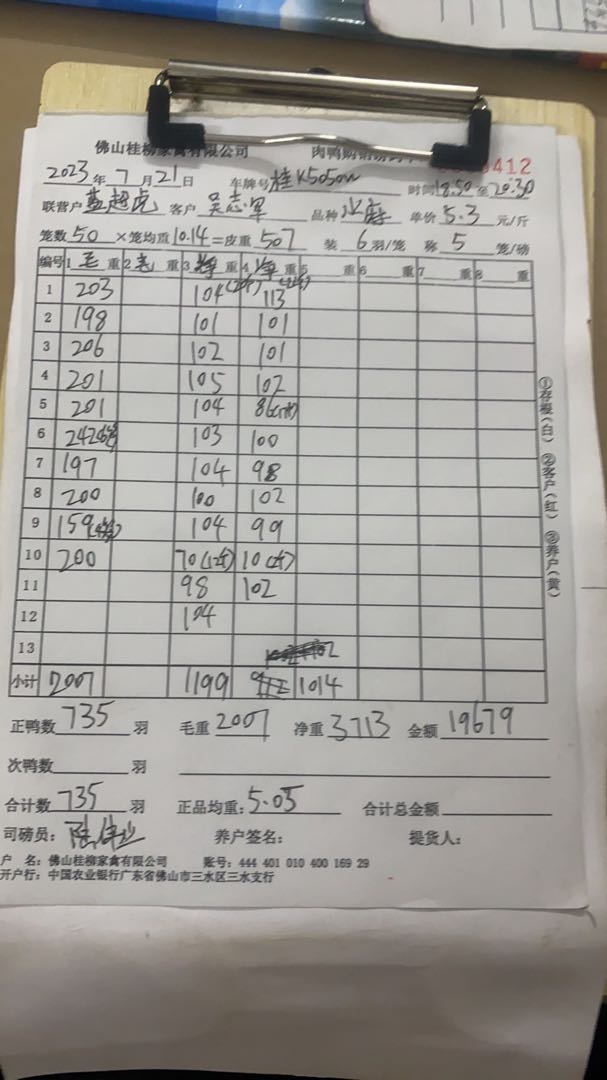 佛山桂柳家禽有限公司 肉鸭购销
412
2023年7月21日 车牌号桂K5050W 时间18:50至20:30
联营户 超虎 客户 吴志军 品种 单价5.3元/斤
笼数50×笼均重10.14=皮重507 装6羽/笼 称5笼/磅
编号 1毛重 2毛重 3净重 4净重 5重 6重 7重 8重
1 203 104 113
2 198 101 101
3 206 102 101
4 201 105 102
5 201 104 86
6 242 103 100
7 197 104 98
8 200 100 102
9 159 104 99
10 200 70 10
11 98 102
12 104
13
小计 2007 1199 1014
正鸭数735羽 毛重2007 净重3713 金额19679
次鸭数 羽
合计数735羽 正品均重:5.05 合计总金额
司磅员: 养户签名: 提货人:
户 名: 佛山桂柳家禽有限公司 账号: 444 401 010 400 169 29
开户行: 中国农业银行广东省佛山市三水区三水支行
①存根(白) ②客户(红) ③养户(黄)